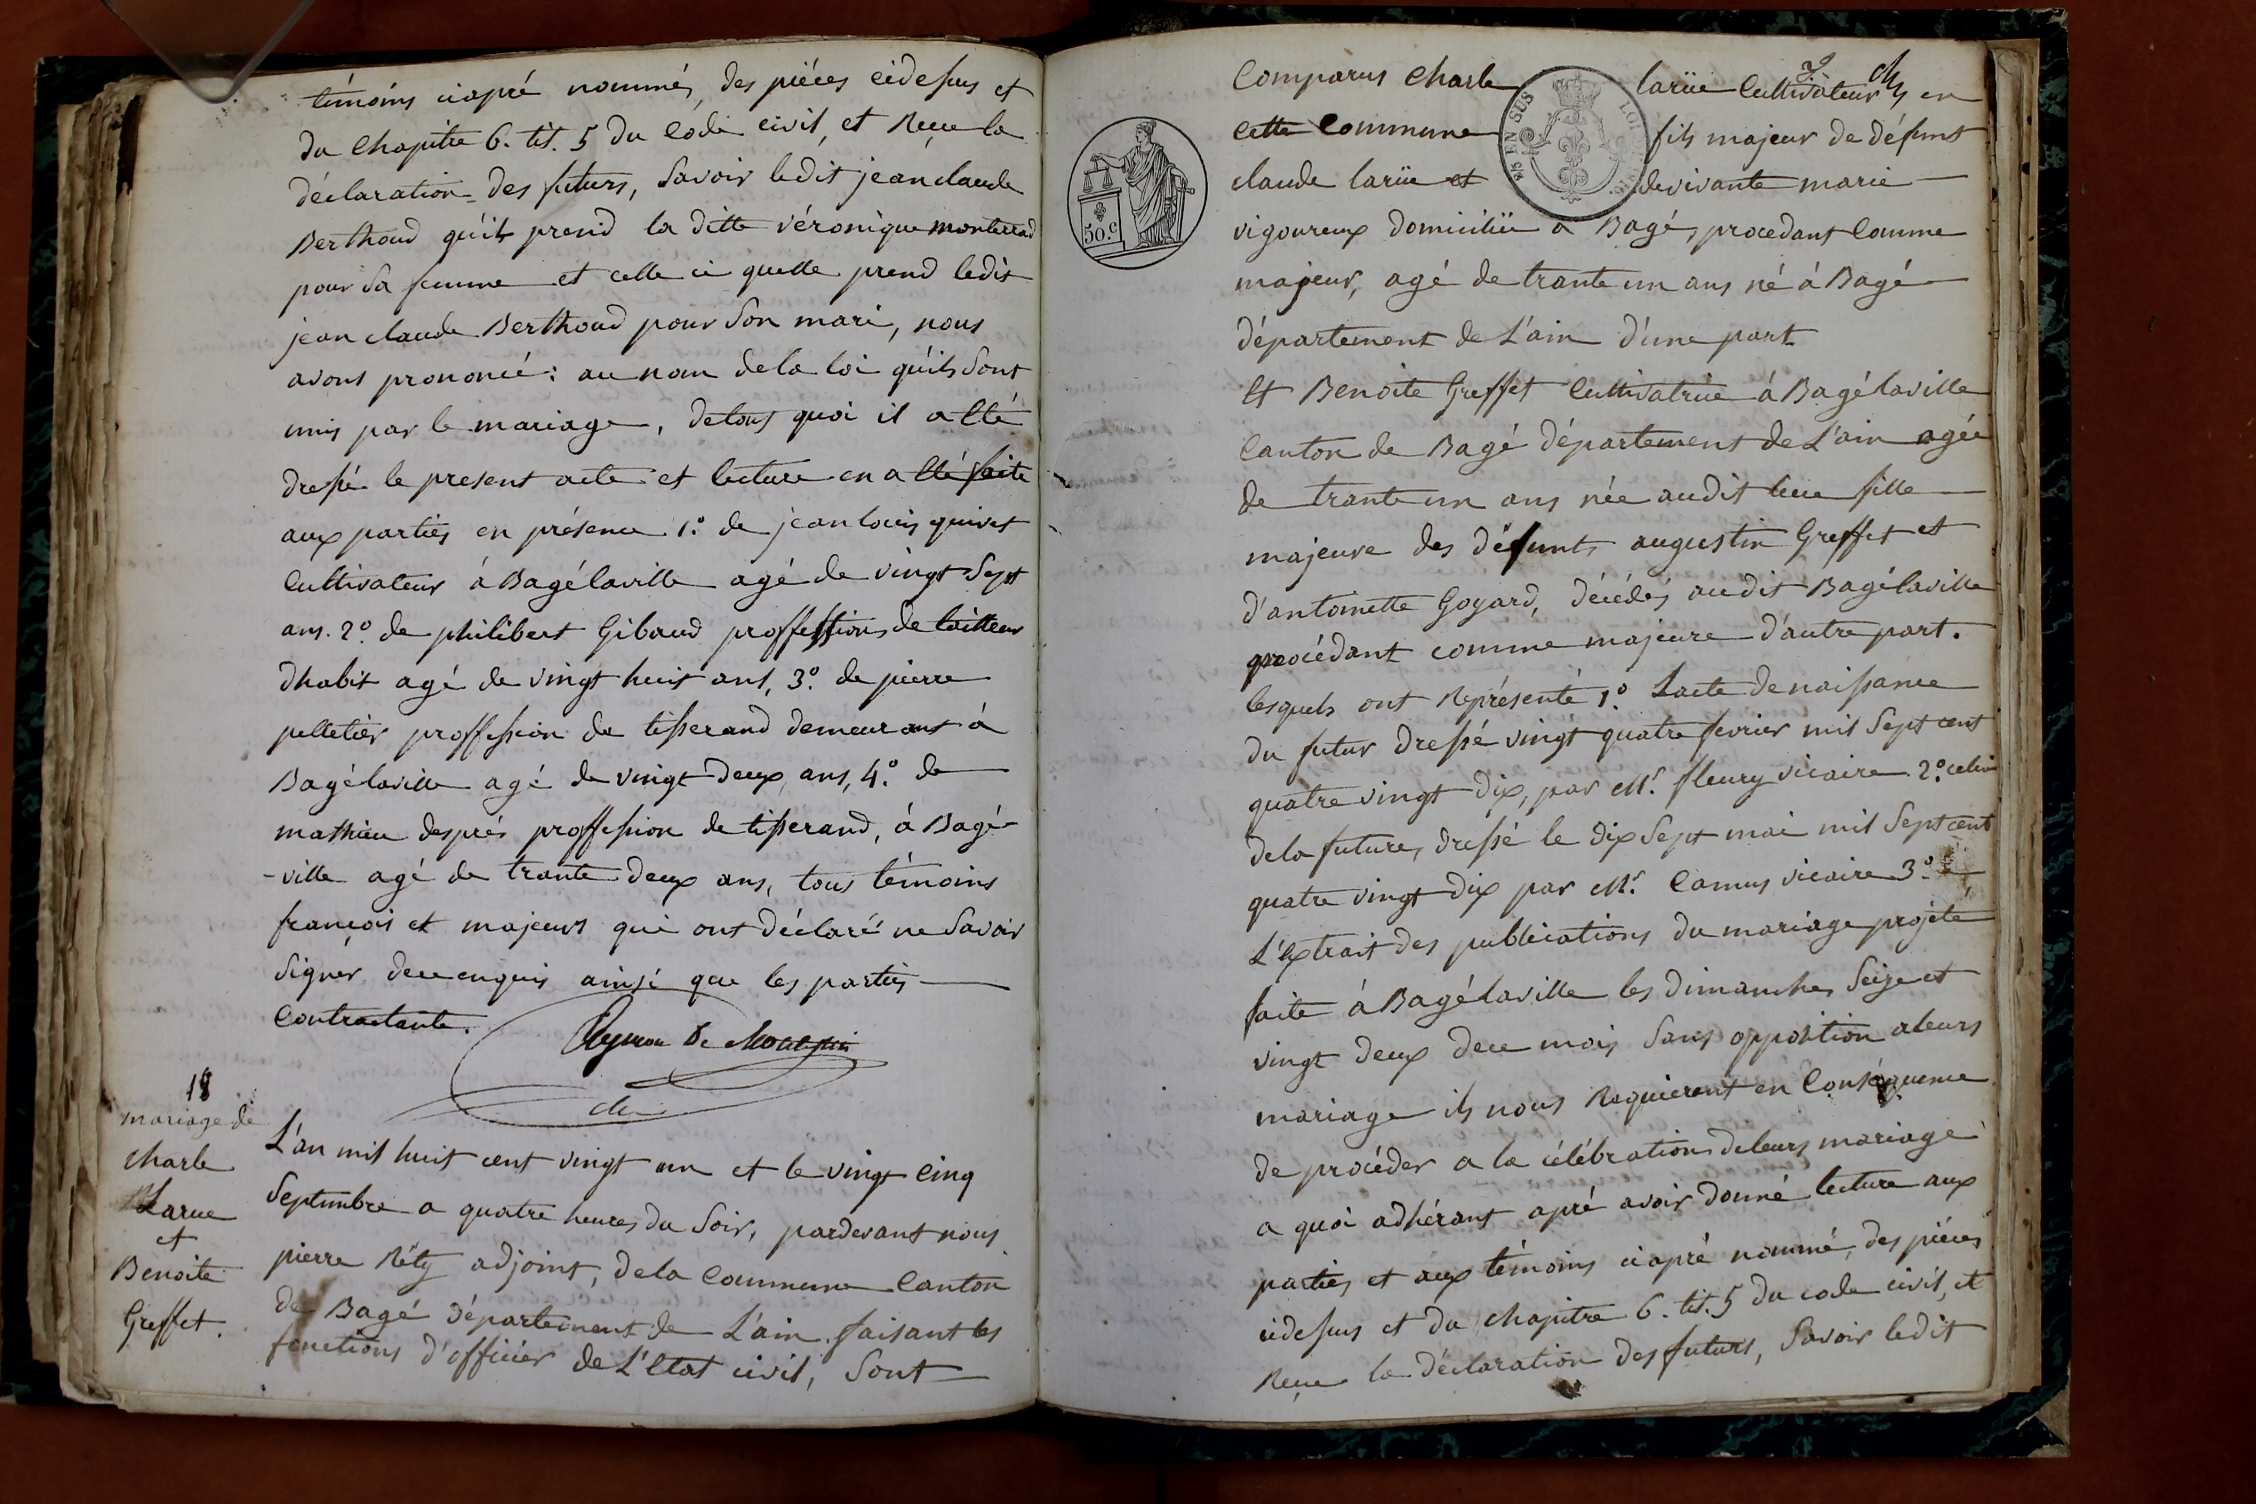 témoins ciapré nommés, des piéces cidessus et
du Chapitre 6. tit. 5 du Code civil, et Reçu la
déclaration des futurs, Savoir ledit jean claude
Berthoud qu'il prend la ditte véronique monterrad
pour Sa femme et celle ci quelle prend ledit
jean claude Berthoud pour Son mari, nous
avons prononcé: au nom dela loi qu'ils Sont
unis par le mariage, detous quoi il a Eté
dressé le present acte et lecture en a Eté faite
aux parties en présence 1.º de jean louis quivet
Cultivateur á Bagélaville agé de vingt Sept
ans. 2.º de philibert Gibaud proffession de tailleur
dhabit agé de vingt huit ans, 3.º de pierre
pelletier proffession de tisserand demeurant á
Bagélaville agé de vingt deux ans, 4.º de
mathieu després proffession de tisserand, á Bagé-
-ville agé de trante deux ans, tous témoins
françois et majeurs qui ont déclaré ne Savoir
Signer dece enquis ainsi que les parties
Contractante.
18
mariage de
Charle
Larue
et
Benoite
Greffet.
L'an mil huit cent vingt un et le vingt Cinq
Septembre a quatre heures du Soir, pardevant nous
pierre Réty adjoint, dela Commune Canton
de Bagé département de L'ain faisant les
fonctions d'officier de L'Etat civil, Sont
50.C
EN SUS
LOI
Comparus Charle larüe Cultivateur en
Cette Commune fils majeur de défunt
claude larüe et de vivante marie
vigoureux domiciliée a Bagé, procedant Comme
majeur, agé de trante un ans né á Bagé
département de L'ain d'une part
Et Benoite Greffet Cultivatrice á Bagélaville
Canton de Bagé département de L'ain agée
de trante un ans née audit lieu fille
majeure des défunts augustin Greffet et
d'antoinette Goyard, décédés audit Bagélaville
procédant comme majeure d'autre part.
lesquels ont Représenté 1.º Lacte de naissance
du futur dressé vingt quatre fevrier mil Sept cent
quatre vingt dix, par Mr. fleury vicaire 2.º celui
dela future, dressé le dix Sept mai mil Sept cent
quatre vingt dix par Mr. Camus vicaire 3.º
L'Extrait des publications du mariage projeté
faite á Bagélaville les dimanches Seize et
vingt deux dece mois Sans opposition aleurs
mariage ils nous Requierent en Conséquence
de procéder a la célébration deleurs mariage
a quoi adhérant apré avoir donné lecture aux
parties et aux témoins ciapré nommé, des piéces
cidessus et du chapitre 6. tit. 5 du code civil, et
Reçu la déclaration des futurs, Savoir ledit